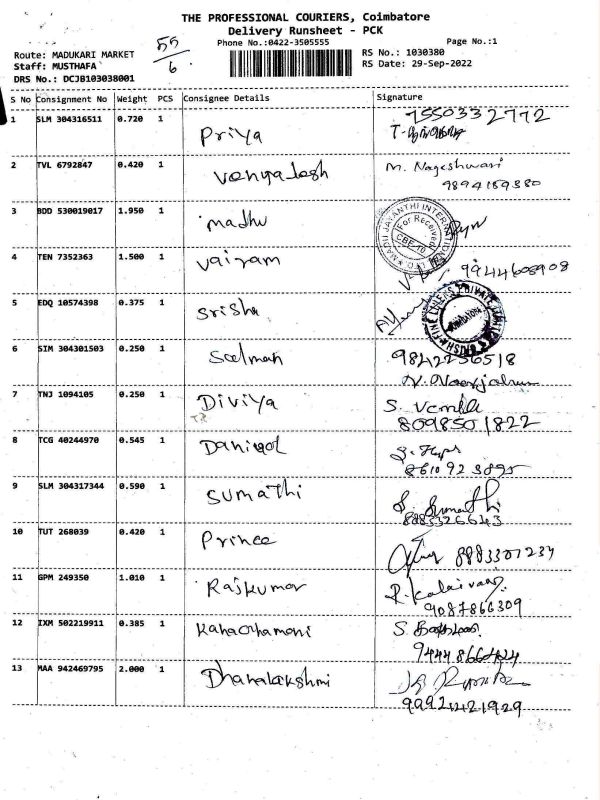 THE PROFESSIONAL COURIERS, Coimbatore
Delivery Runsheet - PCK
Phone No.:0422-3505555
Page No.:1
Route: MADUKARI MARKET
Staff: MUSTHAFA
DRS No.: DCJB103038001
55
6
RS No.: 1030380
RS Date: 29-Sep-2022
S No Consignment No Weight PCS Consignee Details Signature
1 SLM 304316511 0.720 1 Priya 7550332772
2 TVL 6792847 0.420 1 Venyadesh M. Nageshwari
9894189380
3 BDD 530019017 1.950 1 madhu
For Received
4 TEN 7352363 1.500 1 Vairam 9944608908
5 EDQ 10574398 0.375 1 Srisha
6 SIM 304301503 0.250 1 Salman 9842256518
7 TNJ 1094105 0.250 1 Diviya S. Vemla
8098501822
8 TCG 40244970 0.545 1 Daniyol
9 SLM 304317344 0.590 1 Sumathi S. Sumathi
10 TUT 268039 0.420 1 Prince 8883307234
11 GPM 249350 1.010 1 Rajkumar
9087866309
12 IXM 502219911 0.385 1
9444866424
13 MAA 942469795 2.000 1 Dhanalakshmi